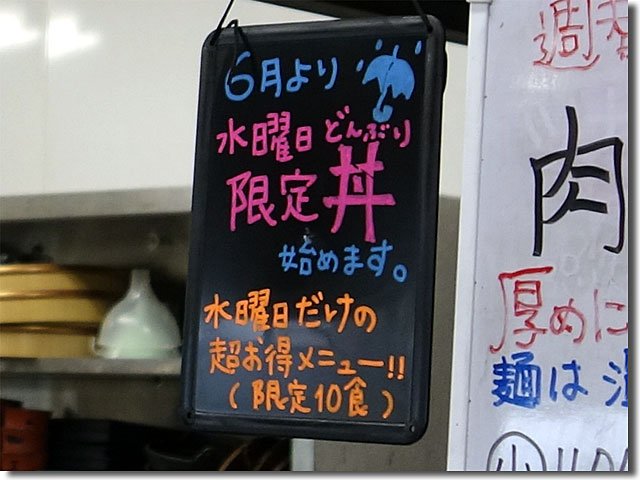 6月より
水曜日どんぶり
限定丼
始めます。
水曜日だけの
超お得メニュー!!
(限定10食)
週
肉
厚めに
麺は
小